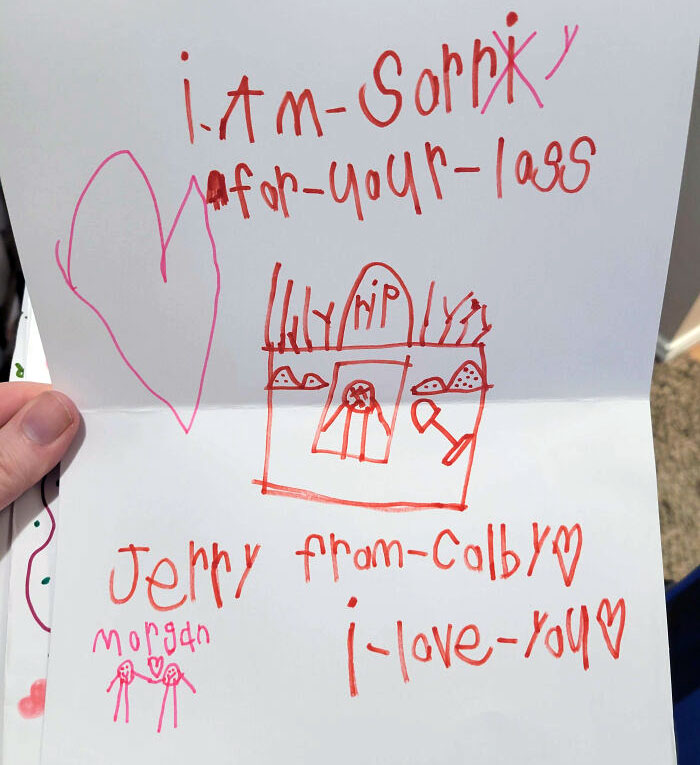 i.Am-Sorry
for-your-loss
rip
Jerry from-Colby
Morgan
i-love-you